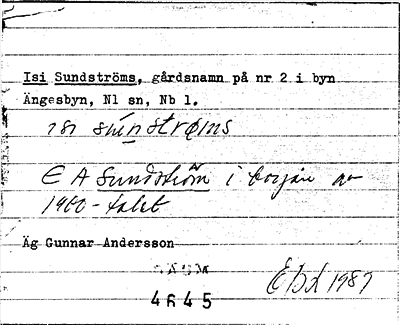 Isi Sundströms, gårdsnamn på nr 2 i byn
Ängesbyn, Nl sn, Nb l.
isi súnstrøms
E A Sundström i början av
1900-talet
Äg Gunnar Andersson
4645
1987